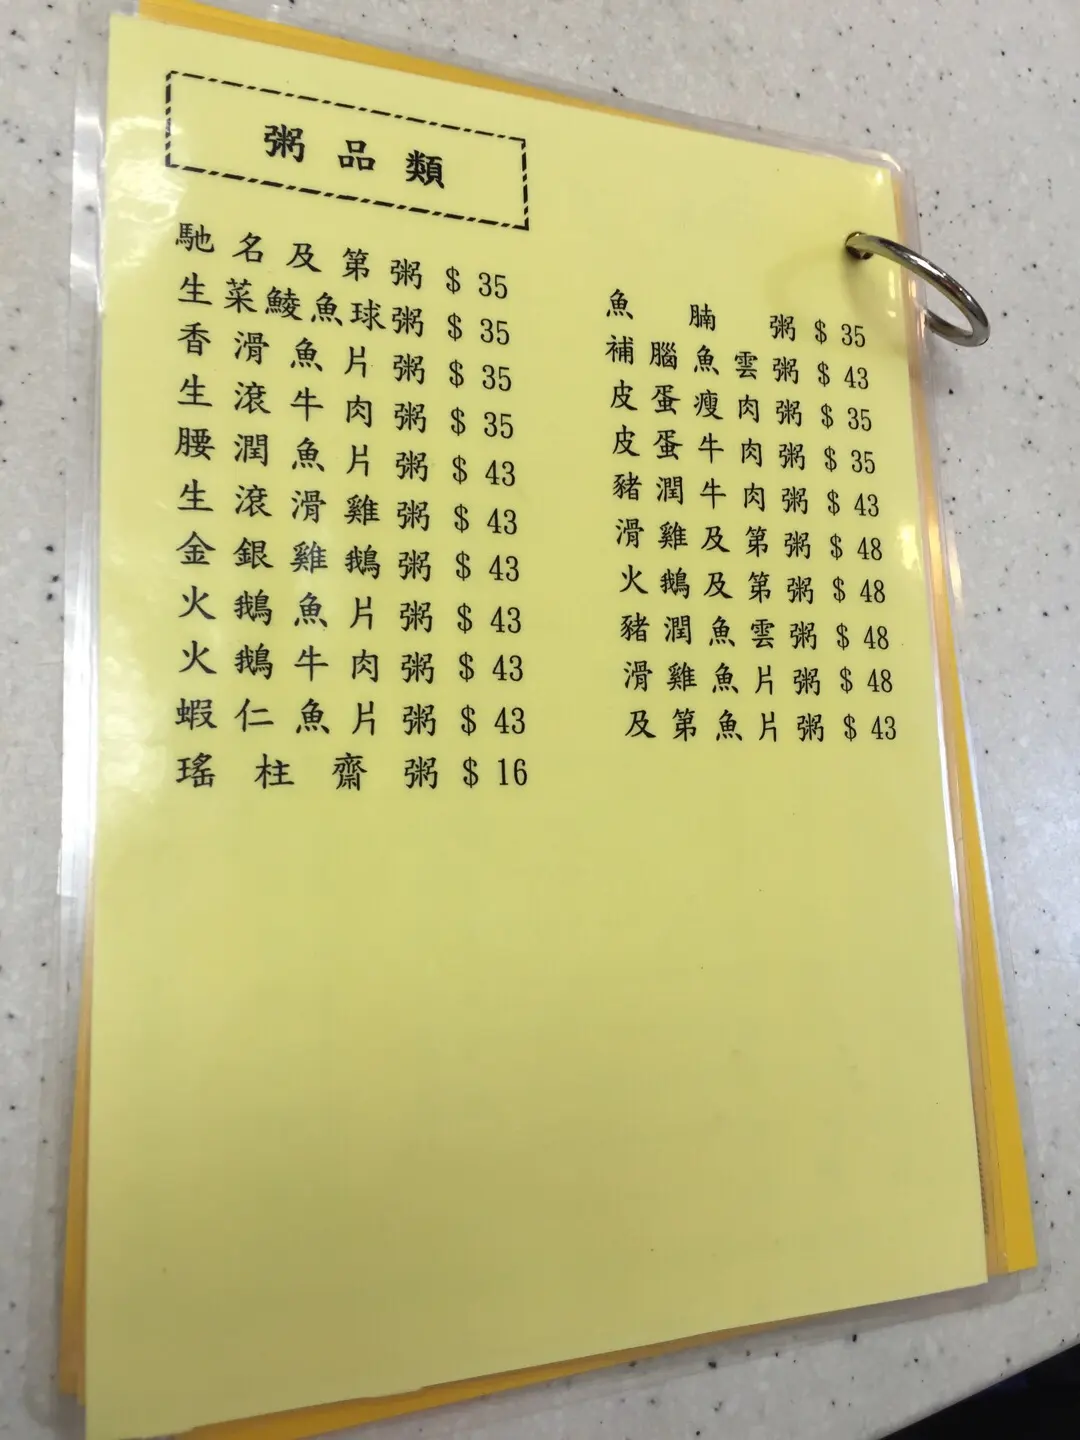 粥品類
馳名及第粥 $ 35
生菜鯪魚球粥 $ 35
香滑魚片粥 $ 35
生滾牛肉粥 $ 35
腰潤魚片粥 $ 43
生滾滑雞粥 $ 43
金銀雞鵝粥 $ 43
火鵝魚片粥 $ 43
火鵝牛肉粥 $ 43
蝦仁魚片粥 $ 43
瑤柱齋粥 $ 16
魚腩粥 $ 35
補腦魚雲粥 $ 43
皮蛋瘦肉粥 $ 35
皮蛋牛肉粥 $ 35
豬潤牛肉粥 $ 43
滑雞及第粥 $ 48
火鵝及第粥 $ 48
豬潤魚雲粥 $ 48
滑雞魚片粥 $ 48
及第魚片粥 $ 43